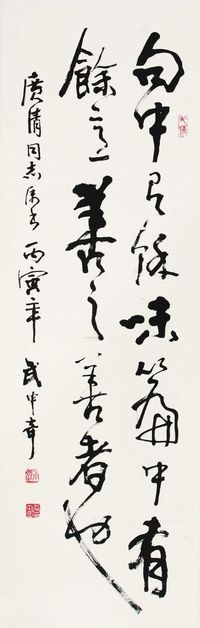 句中有餘味篇中有
餘意善之善者也
廣清同志屬書丙寅年武中奇